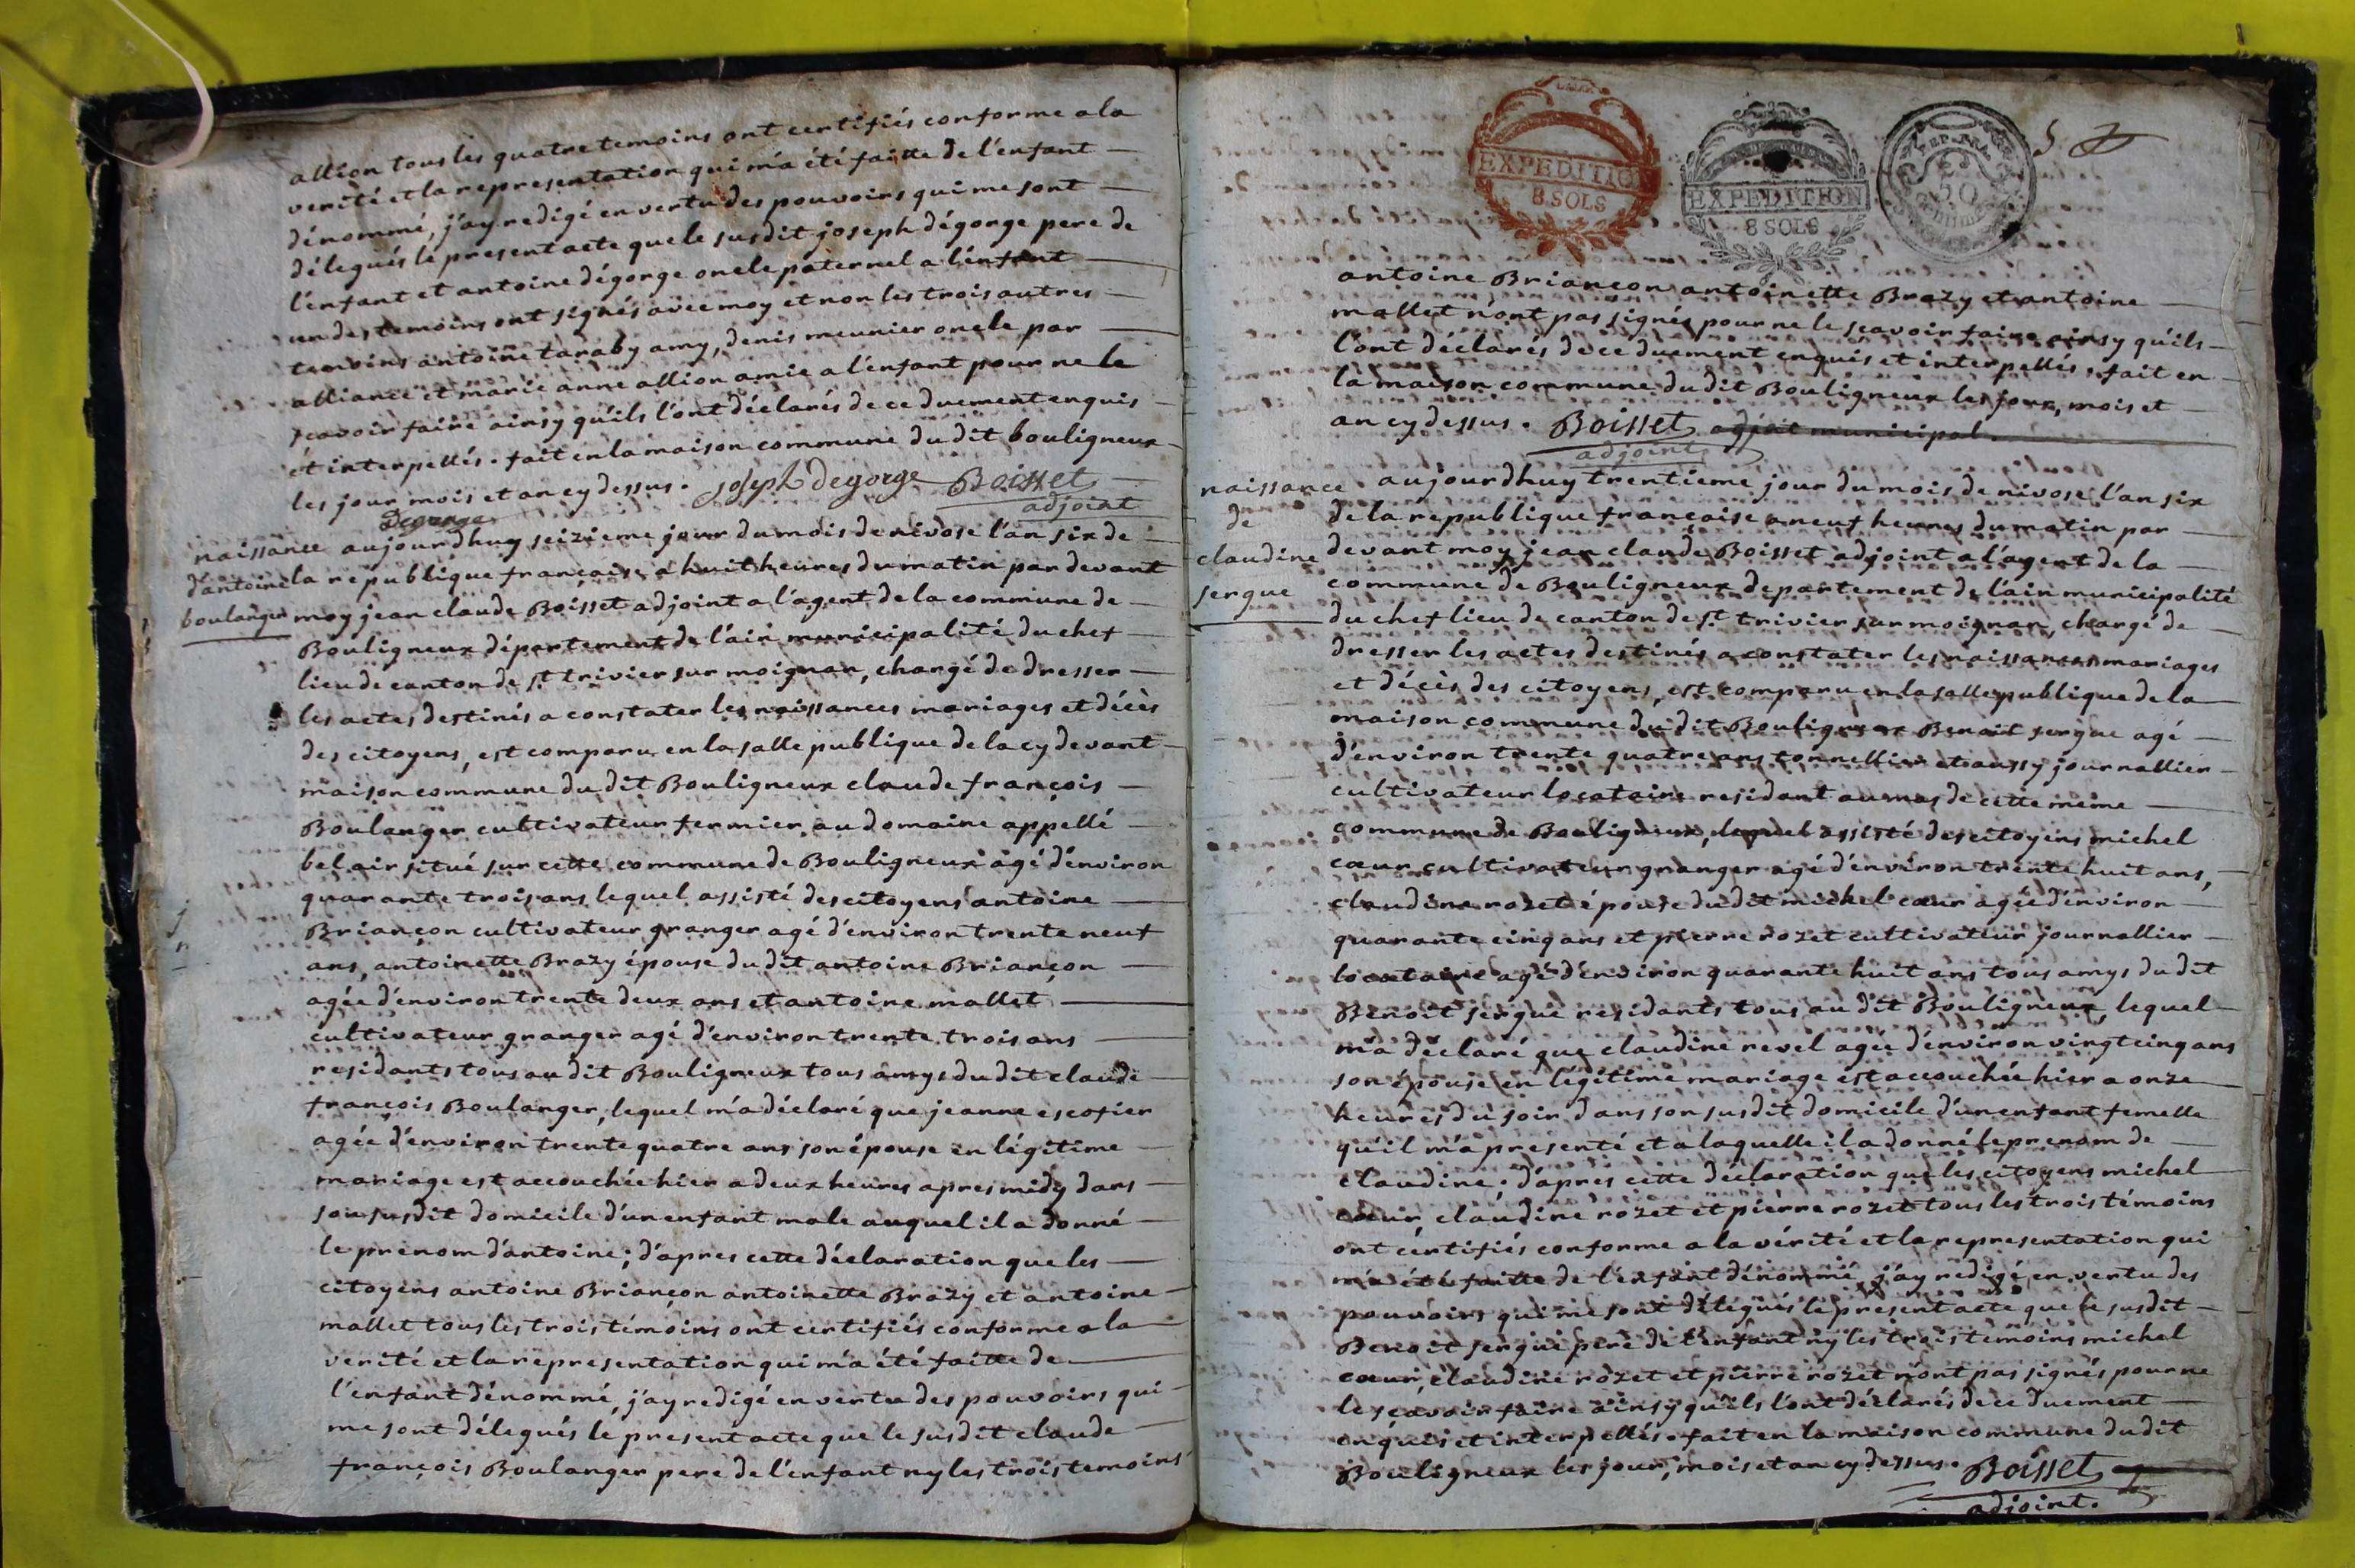 allion tous les quatre temoins ont certifiés conforme a la
verité et la representation qui m'a été faitte de l'enfant
dénommé, j'ay redigé en vertu des pouvoirs qui me sont
délegués le present acte que le susdit joseph dégorge pere de
l'enfant et antoine dégorge oncle paternel a l'enfant
un des temoins ont signés avec moy et non les trois autres
temoins antoine taraby amy, denis meunier oncle par
alliance et marie anne allion amie a l'enfant pour ne le
sçavoir faire ainsy qu'ils l'ont déclarés de ce duement enquis
et interpellés. fait en la maison commune du dit bouligneux
les jour mois et an cy dessus. joseph degorge Boisset
Degorge adjoint
naissance
d'antoine
boulanger
aujourdhuy seizieme jour du mois de nivose l'an six de
la republique française a huit heures du matin par devant
moy jean claude Boisset adjoint a l'agent de la commune de
Bouligneux département de l'ain municipalité du chef
lieu de canton de st trivier sur moignan, chargé de dresser
les actes destinés a constater les naissances mariages et décès
des citoyens, est comparu en la salle publique de la cy devant
maison commune du dit Bouligneux claude françois
Boulanger cultivateur fermier au domaine appellé
bel air situé sur cette commune de Bouligneux agé d'environ
quarante trois ans lequel assisté des citoyens antoine
Briançon cultivateur granger agé d'environ trente neuf
ans, antoinette Brazy épouse du dit antoine Briançon
agée d'environ trente deux ans et antoine mallet
cultivateur granger agé d'environ trente trois ans
residants tous au dit Bouligneux tous amys du dit claude
françois Boulanger, lequel m'a déclaré que jeanne escofier
agée d'environ trente quatre ans son épouse en légitime
mariage est accouchée hier a deux heures apres midy dans
son susdit domicile d'un enfant male auquel il a donné
le prenom d'antoine; d'apres cette déclaration que les
citoyens antoine Briançon antoinette Brazy et antoine
mallet tous les trois témoins ont certifiés conforme a la
verité et la representation qui m'a été faitte de
l'enfant dénommé, j'ay redigé en vertu des pouvoirs qui
me sont délegués le present acte que le susdit claude
françois Boulanger pere de l'enfant ny les trois temoins
EXPEDITION
8 SOLS
EXPEDITION
8 SOLS
REP. FRA.
50
5
antoine Briançon antoinette Brazy et antoine
mallet n'ont pas signés pour ne le sçavoir faire ainsy qu'ils
l'ont déclarés de ce duement enquis et interpellés, fait en
la maison commune du dit Bouligneux les jour, mois et
an cy dessus. Boisset municipal.
adjoint
naissance
de
claudine
sergue
aujourdhuy trentieme jour du mois de nivose l'an six
de la republique française a neuf heures du matin par
devant moy jean claude Boisset adjoint a l'agent de la
commune de Bouligneux departement de l'ain municipalité
du chef lieu de canton de st trivier sur moignan, chargé de
dresser les actes destinés a constater les naissances mariages
et décès des citoyens, est comparu en la salle publique de la
maison commune du dit Bouligneux Benoit sergue agé
d'environ trente quatre ans tonnellier et aussy journallier
cultivateur locataire residant au mas de cette meme
commune de Bouligneux, lequel assisté des citoyens michel
cœur cultivateur granger agé d'environ trente huit ans,
claudine rozet épouse du dit michel cœur agée d'environ
quarante cinq ans et pierre rozet cultivateur journallier
locataire agé d'environ quarante huit ans tous amys du dit
Benoit sergue residants tous au dit Bouligneux, lequel
m'a déclaré que claudine revel agée d'environ vingt cinq ans
son épouse en légitime mariage est accouchée hier a onze
heures du soir dans son susdit domicile d'un enfant femelle
qu'il m'a presenté et a laquelle il a donné le prenom de
claudine. d'apres cette déclaration que les citoyens michel
cœur, claudine rozet et pierre rozet tous les trois témoins
ont certifiés conforme a la vérité et la representation qui
m'a été faitte de l'enfant dénommé, j'ay redigé en vertu des
pouvoirs qui me sont délegués le present acte que le susdit
Benoit sergue pere de l'enfant ny les trois temoins michel
cœur, claudine rozet et pierre rozet n'ont pas signés pour ne
le sçavoir faire ainsy qu'ils l'ont déclarés de ce duement
enquis et interpellés. fait en la maison commune du dit
Bouligneux les jour, mois et an cy dessus. Boisset
adjoint.